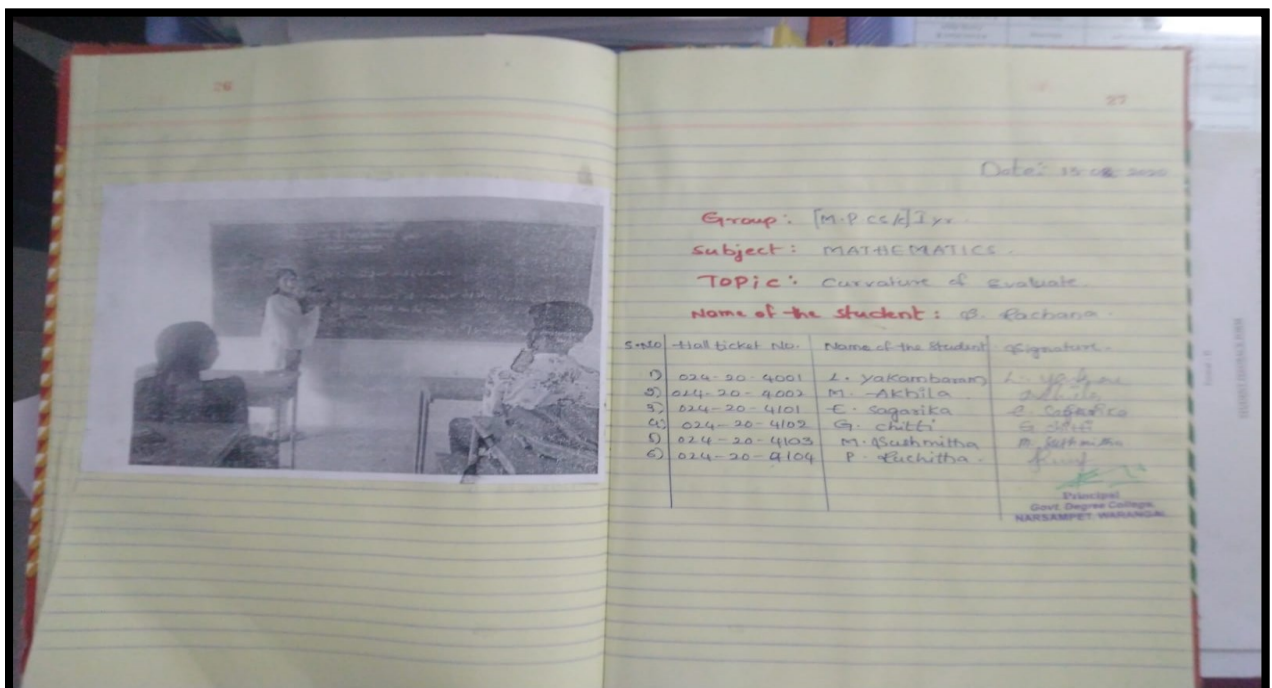 26
27
Date: 15 2020
Group: [M.P.CS] I yr.
Subject: MATHEMATICS.
TOPic: Curvature of Evaluate.
Name of the student: B. Rachana.
S.NO Hall ticket No. Name of the Student Signature.
1) 024-20-4001 L. yakambaram
2) 024-20-4002 M. Akhila
3) 024-20-4101 E. Sagarika E. Sagarika
4) 024-20-4102 G. chitti G. chitti
5) 024-20-4103 M. Sushmitha M. Sushmitha
6) 024-20-4104 P. Ruchitha.
Principal
Govt. Degree College,
NARSAMPET, WARANGAL